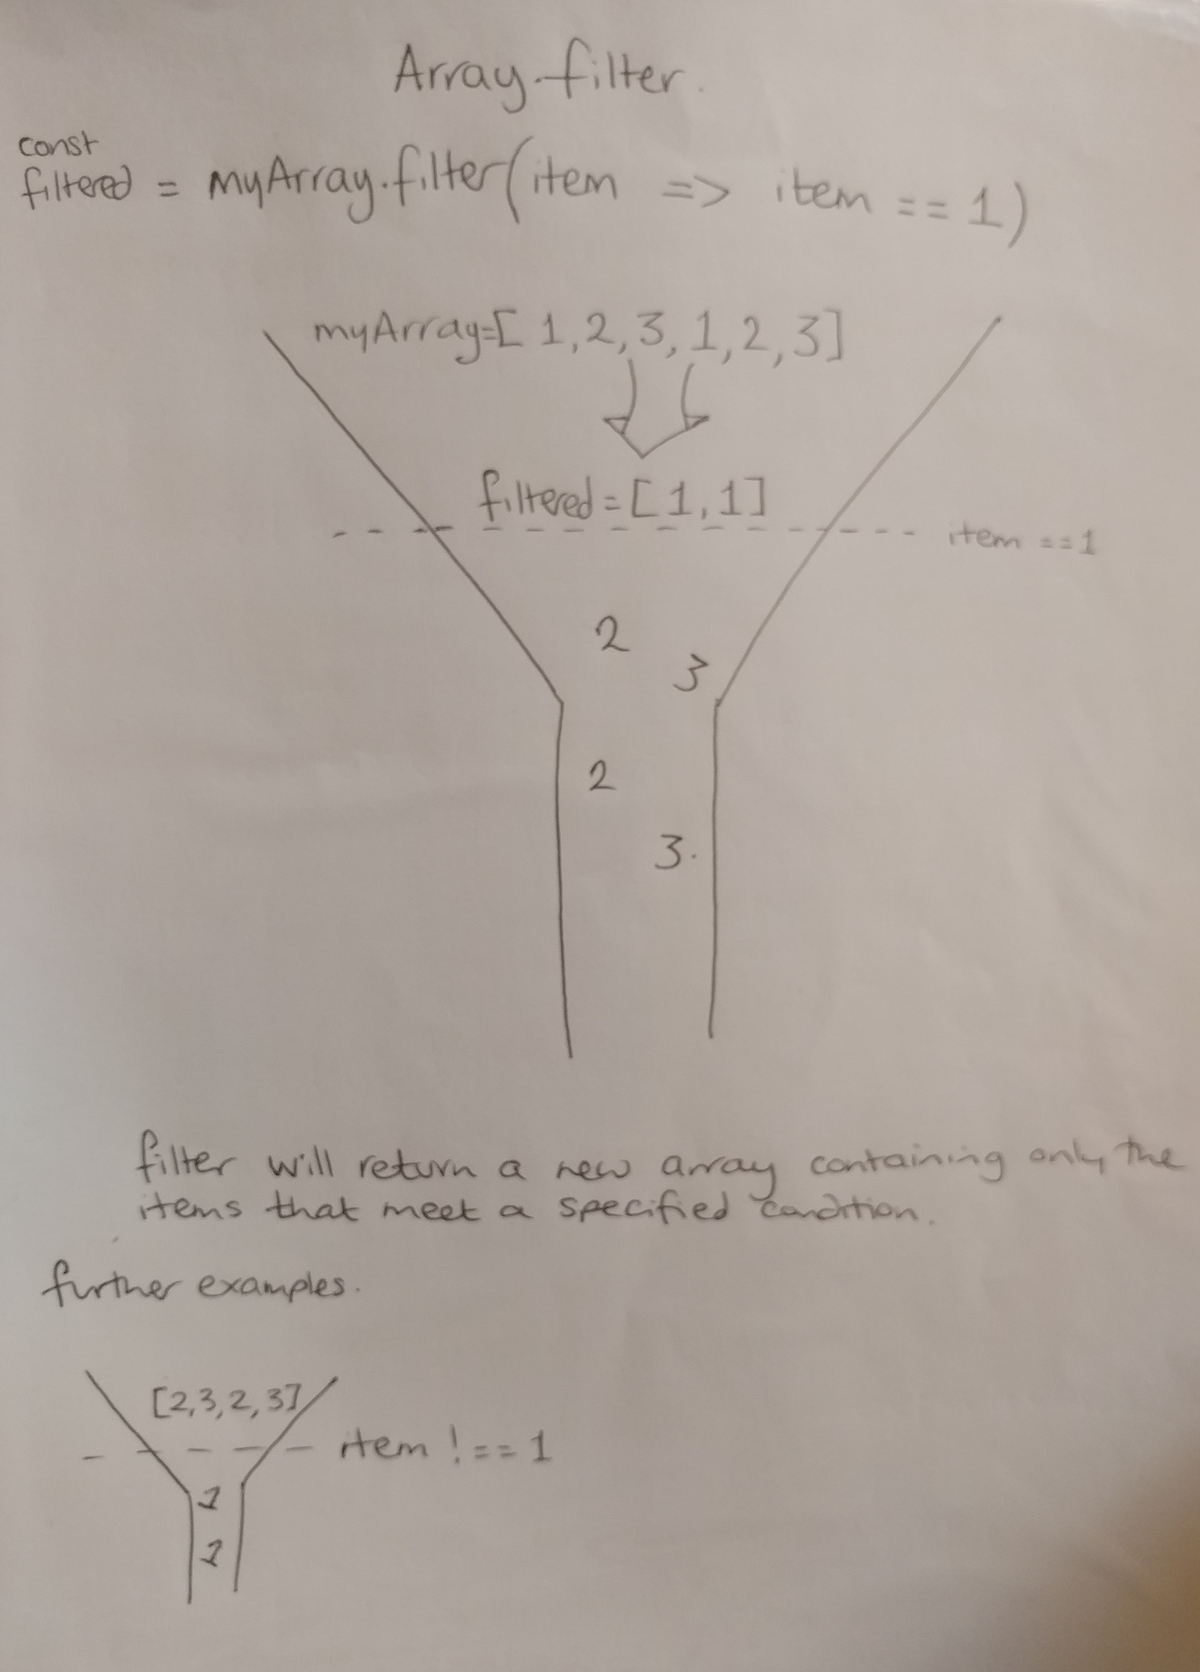 Array.filter.
const
filtered = myArray.filter(item => item == 1)
myArray=[ 1,2,3,1,2,3]
filtered=[1,1]
item ==1
2
3
2
3.
filter will return a new array containing only the
items that meet a specified condition.
further examples.
[2,3,2,3]
item !== 1
1
1